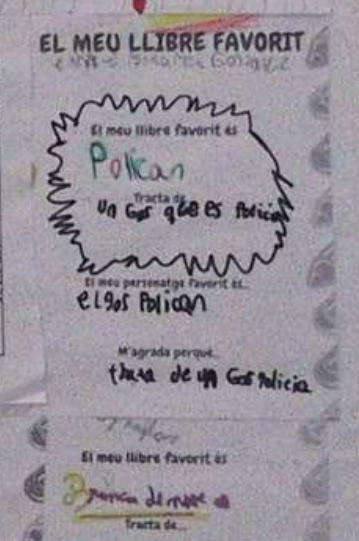 EL MEU LLIBRE FAVORIT
El meu llibre favorit és
Polican
Tracta de
un Gos que es Policia
El meu personatge favorit és...
el gos Polican
M'agrada perquè...
de un Gos Policia
El meu llibre favorit és
Tracta de...